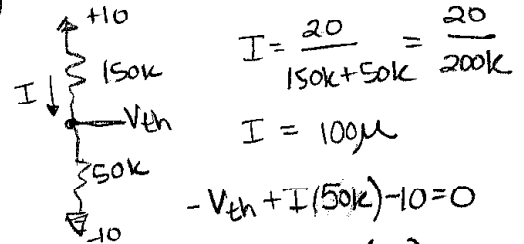 +10
150k
I
Vth
50k
-10
I = 20 / 150k+50k = 20 / 200k
I = 100μ
-Vth + I(50k) -10 = 0